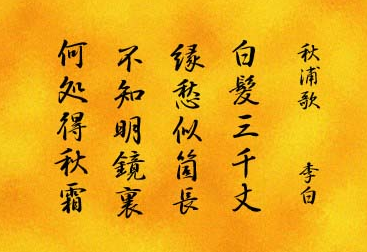 秋浦歌 李白
白髮三千丈
縁愁似箇長
不知明鏡裏
何処得秋霜